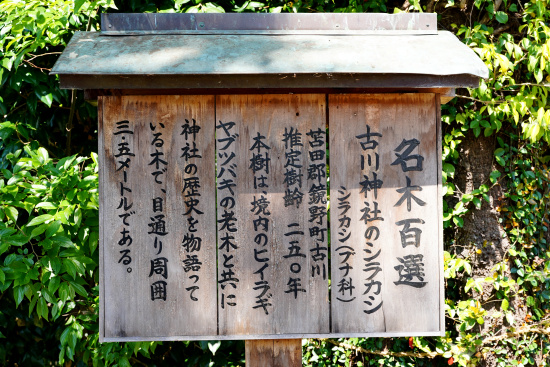 名木百選
古川神社のシラカシ
シラカシ(ブナ科)
苫田郡鏡野町古川
推定樹齢 二五〇年
本樹は境内のヒイラギ
ヤブツバキの老木と共に
神社の歴史を物語って
いる木で、目通り周囲
三.五メートルである。